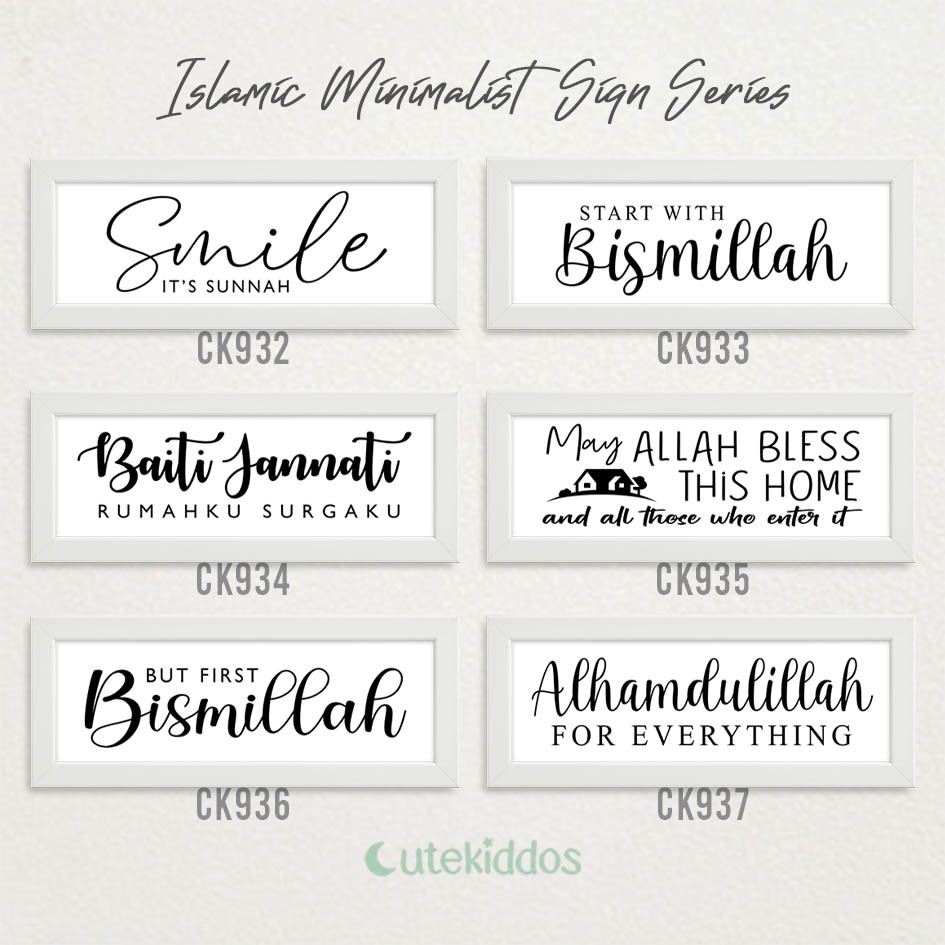 Islamic Minimalist Sign Series
Smile
IT'S SUNNAH
CK932
START WITH
Bismillah
CK933
Baiti Jannati
RUMAHKU SURGAKU
CK934
May ALLAH BLESS
THiS HOME
and all those who enter it
CK935
BUT FIRST
Bismillah
CK936
Alhamdulillah
FOR EVERYTHING
CK937
Cutekiddos